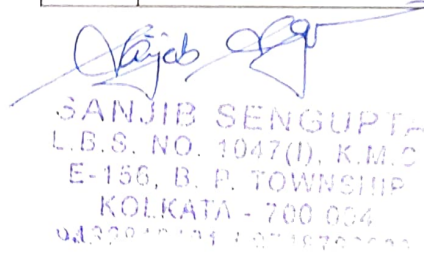 Sanjib
SANJIB SENGUPTA
L.B.S. NO. 1047(I), K.M.C
E-156, B. P. TOWNSHIP
KOLKATA - 700 094